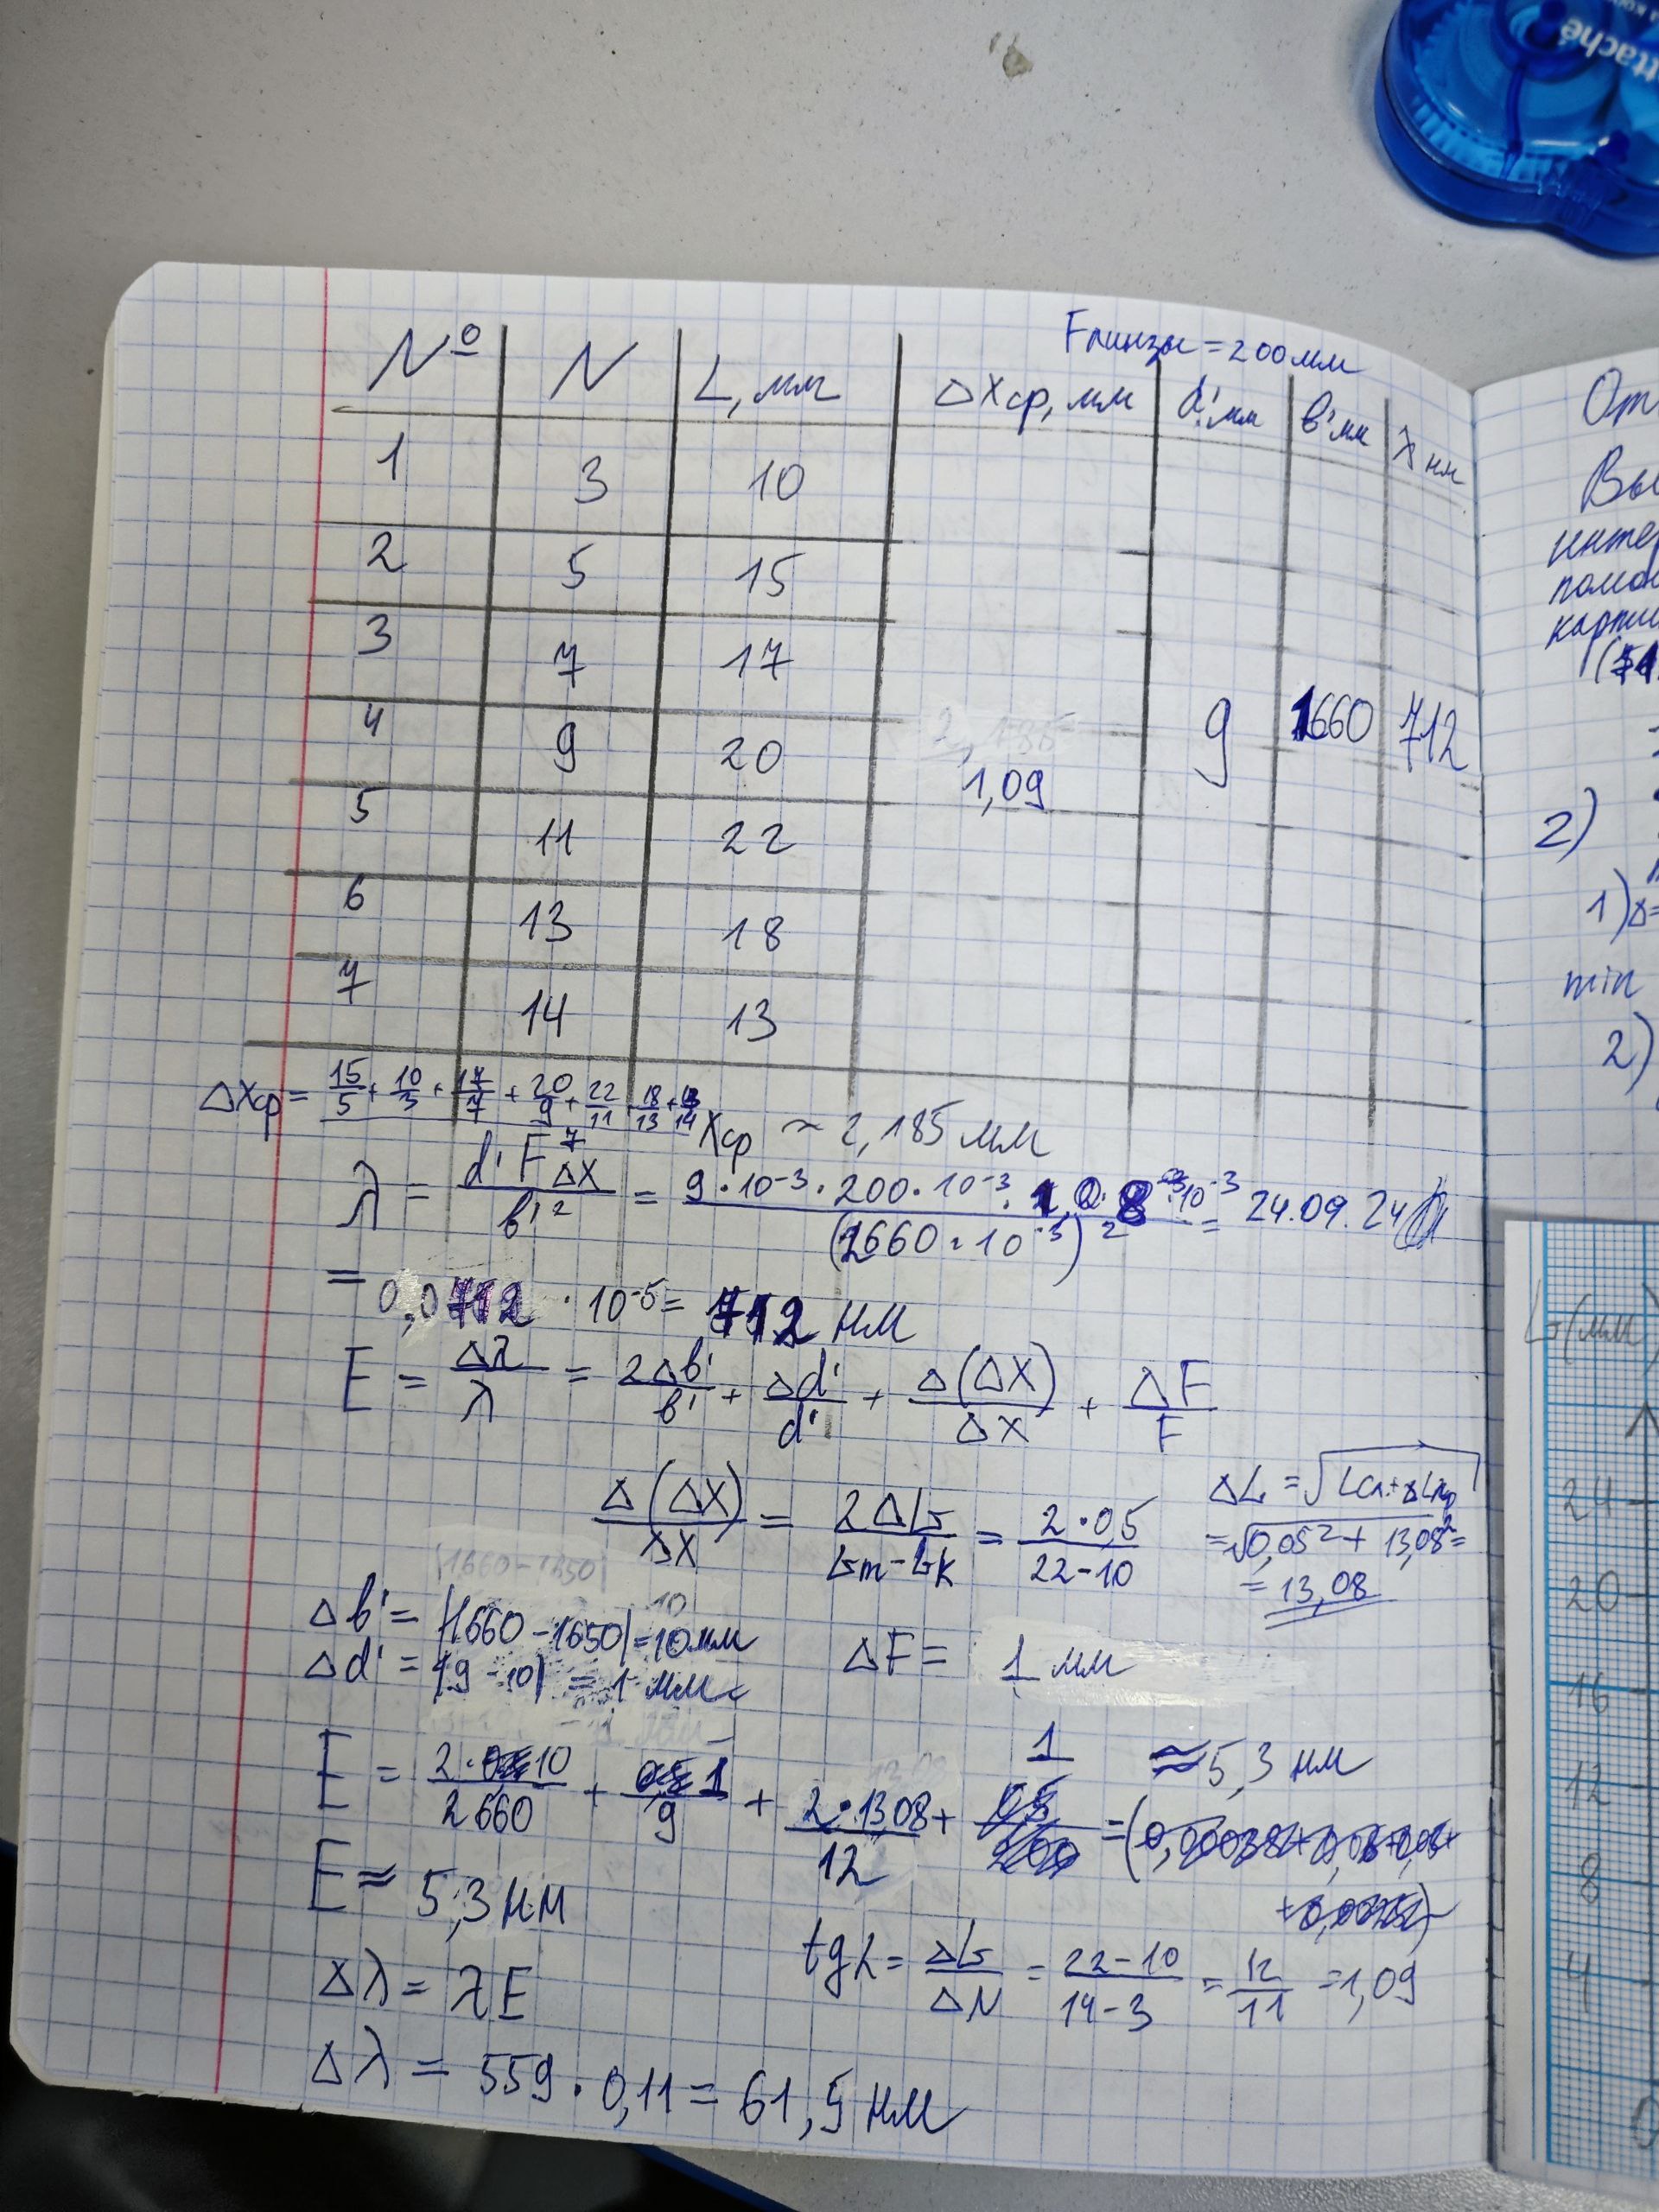 ttaché
Fлинзы = 200мм
№ N L, мм ΔXср, мм d', мм b' мм λ нм
1 3 10
2 5 15
3 7 17
4 9 20
1,09 9 1660 712
5 11 22
6 13 18
7 14 13
ΔXср = (15/5 + 10/3 + 17/7 + 20/9 + 22/11 + 18/13 + 13/14) / 7 Xср ~ 2,185 мм
λ = d' F ΔX / b'² = 9·10⁻³ · 200·10⁻³ · 1,08·10⁻³ / (1660·10⁻³)² = 24.09.24
= 0,0712 · 10⁻⁵ = 712 нм
E = Δλ/λ = 2Δb'/b' + Δd'/d' + Δ(ΔX)/ΔX + ΔF/F
Δ(ΔX)/ΔX = 2ΔL/(Lm - Lk) = 2·0,5/(22-10)
ΔL =
= √0,05² + 13,08² =
= 13,08
Δb' = |1660 - 1650| = 10мм
Δd' = |9 - 10| = 1 мм
ΔF = 1 мм
E = 2·10/2660 + 1/9 + 2·13,08/12 + 1 ≈ 5,3 нм
E ≈ 5,3 нм
tgL = ΔL/ΔN = (22-10)/(14-3) = 12/11 = 1,09
Δλ = λE
Δλ = 559 · 0,11 = 61,5 нм
2)
1)
min
2)
L(мм)
24
20
16
12
8
4
0